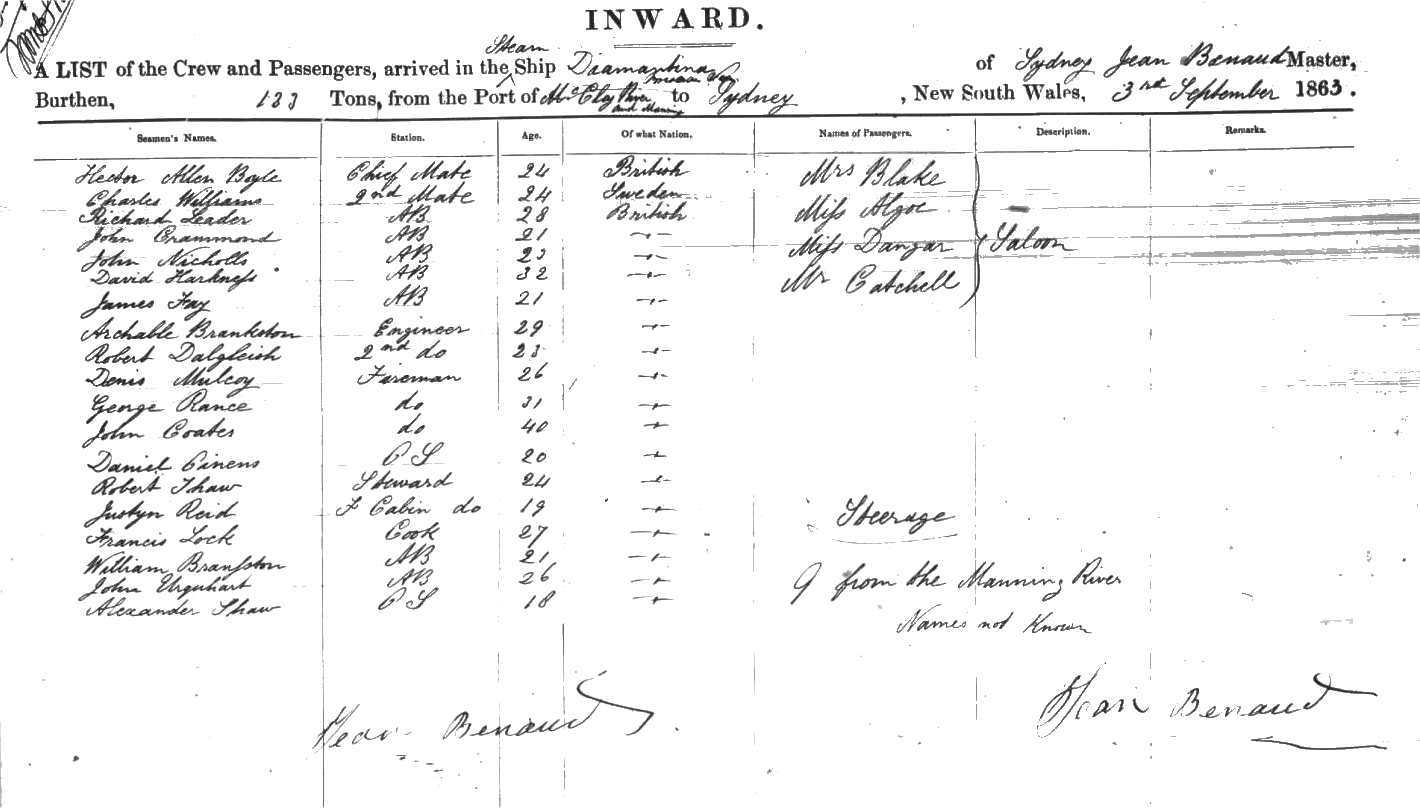 INWARD.
Steam
A LIST of the Crew and Passengers, arrived in the Ship Diamantina of Sydney Jean Benaud Master,
Burthen, 133 Tons, from the Port of McClay River and Manning to Sydney , New South Wales, 3rd September 1863.
Seamen's Names. Station. Age. Of what Nation. Names of Passengers. Description. Remarks.
Hector Allen Boyle Chief Mate 24 British Mrs Blake
Charles Williams 2nd Mate 24 Sweden
Richard Leader AB 28 British Miss Algoe
John Crammond AB 21 -"- Miss Dangar Saloon
John Nicholls AB 23 -"-
David Harkness AB 32 -"- Mr Catchell
James Fay AB 21 -"-
Archable Brankston Engineer 29 -"-
Robert Dalgleish 2nd do 23 -"-
Denis Mulcoy Fireman 26 -"-
George Rance do 31 -"-
John Coates do 40 -"-
Daniel Cinens OS 20 -"-
Robert Shaw Steward 24 -"-
Justyn Reid F Cabin do 19 -"- Steerage
Francis Lock Cook 27 -"-
William Bransston AB 21 -"-
John Urquhart AB 26 -"- 9 from the Manning River
Alexander Shaw OS 18 -"-
Names not Known
Jean Benaud
Jean Benaud